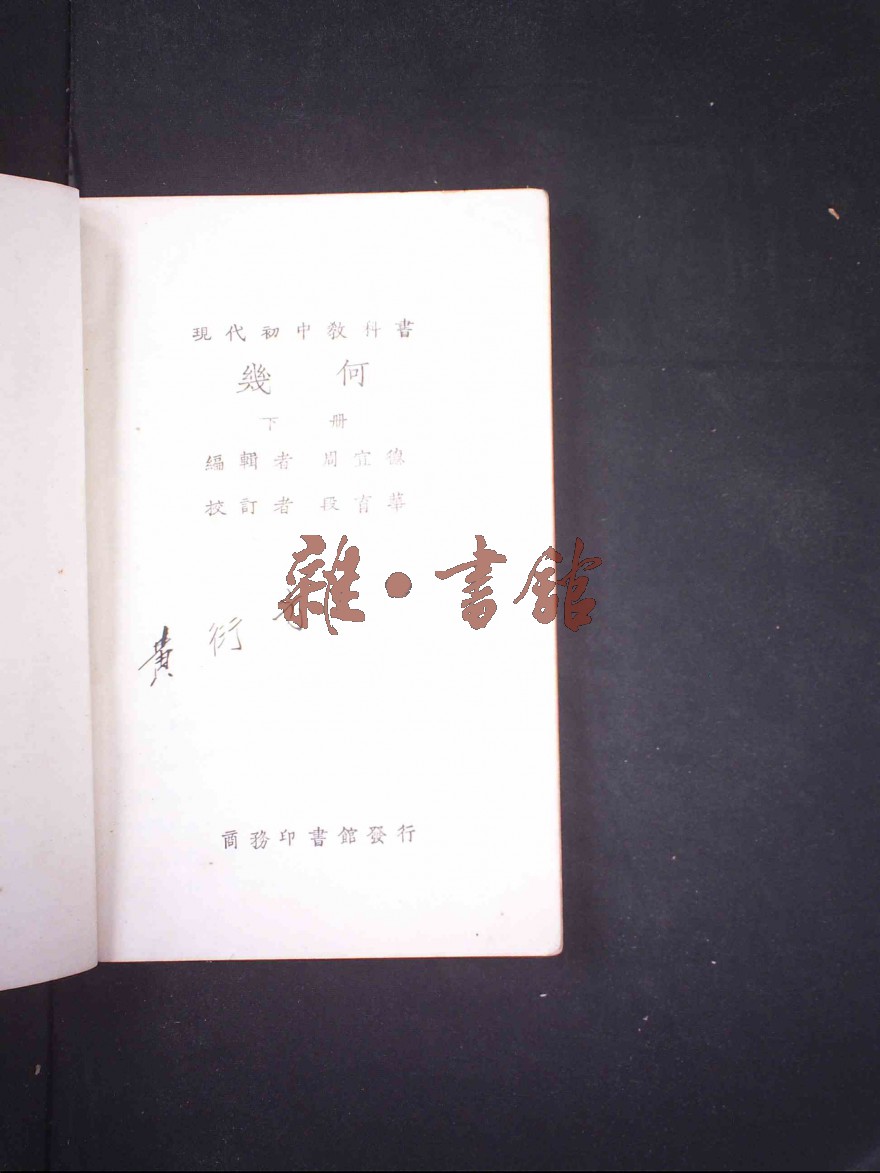 現代初中教科書
幾何
下冊
編輯者 周宜德
校訂者 段育華
雜·書館
黃衍
商務印書館發行